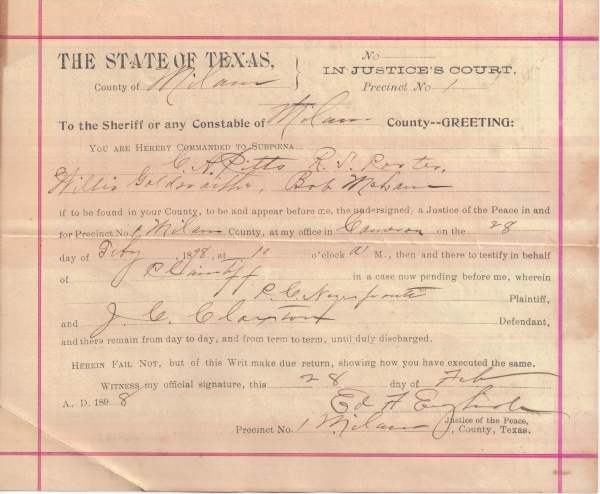 THE STATE OF TEXAS,
County of Milam
No
IN JUSTICE'S COURT,
Precinct No 1
To the Sheriff or any Constable of Milam County--GREETING:
YOU ARE HEREBY COMMANDED TO SUBPOENA
C. A. Pitts R. T. Porter,
Willis Goldsmith, Bob
if to be found in your County, to be and appear before me, the undersigned, a Justice of the Peace in and
for Precinct No 1 Milam County, at my office in Cameron on the 28
day of Feby 1898, at 10 o'clock a M., then and there to testify in behalf
of Plaintiff in a case now pending before me, wherein
P. C. Plaintiff,
and J. C. Claxton Defendant,
and there remain from day to day, and from term to term, until duly discharged.
HEREIN FAIL NOT, but of this Writ make due return, showing how you have executed the same.
WITNESS my official signature, this 28 day of Feb
A. D. 1898
Ed A English
Justice of the Peace,
Precinct No. 1 Milam, County, Texas.